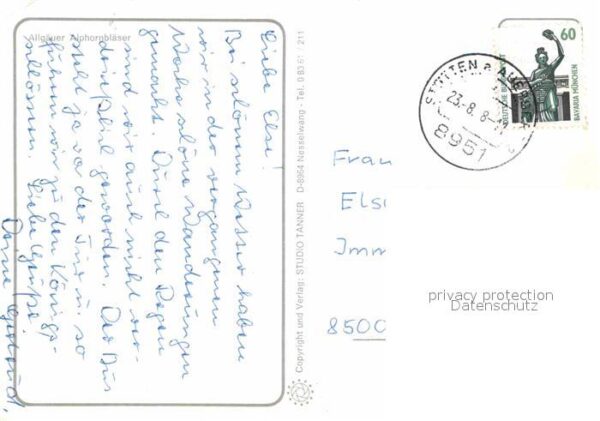 Allgäuer Alphornbläser
Liebe Else!
Bei schönem Wetter haben
wir in der vergangenen
Woche schöne Wanderungen
gemacht. Durch den Regen
sind wir auch nicht ver-
gewörden. Der Bus
steht ja vor der Tür u. so
fuhren wir zu den Königs-
schlössern. Liebe Grüße!
Deine
Copyright und Verlag: STUDIO TANNER D-8964 Nesselwang - Tel. 0 83 61 / 211
60
DEUTSCHE BUNDESPOST
BAVARIA MÜNCHEN
23.-8.8
8951
Frau
Els
Imm
8500
privacy protection
Datenschutz